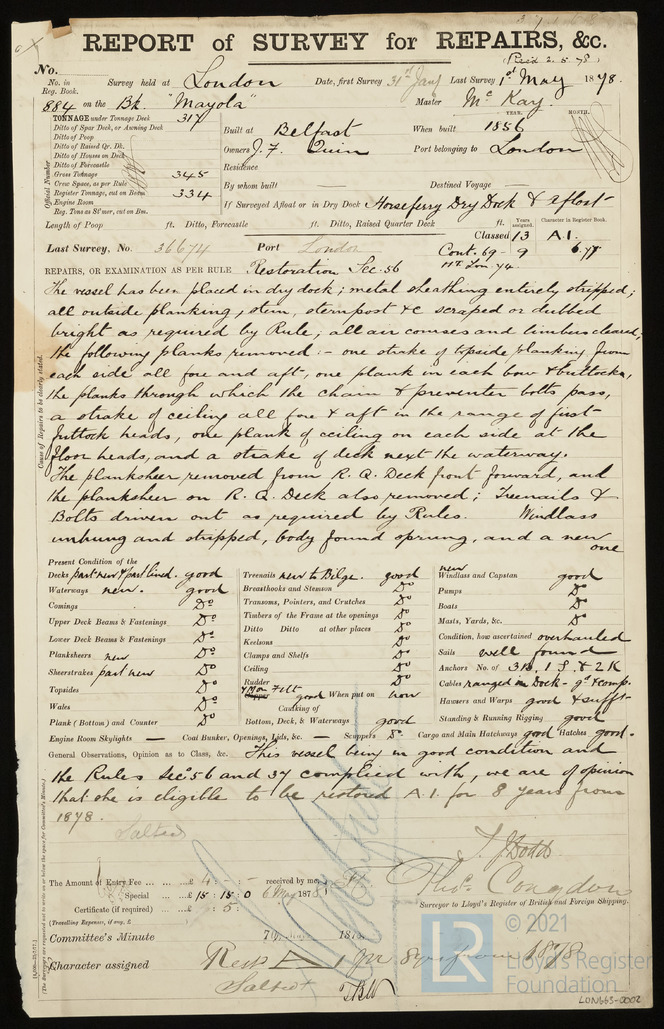 REPORT of SURVEY for REPAIRS, &c.
(Rec'd 2.5.78)
No.
No. in Reg. Book. Survey held at London Date, first Survey 31st Jany Last Survey 1st May 1878.
884 on the Bk. "Mayola" Master McKay.
TONNAGE under Tonnage Deck 317
Ditto of Spar Deck, or Awning Deck
Ditto of Poop
Ditto of Raised Qr. Dk.
Ditto of Houses on Deck
Ditto of Forecastle
Gross Tonnage 345
Crew Space, as per Rule
Register Tonnage, cut on Beam 334
Engine Room
Reg. Tons as St'mer, cut on Bm.
Official Number
Built at Belfast When built YEAR. 1856 MONTH.
Owners J. F. Quin Port belonging to London
Residence
By whom built — Destined Voyage —
If Surveyed Afloat or in Dry Dock Horseferry Dry Dock & afloat
Length of Poop ft. Ditto, Forecastle ft. Ditto, Raised Quarter Deck ft.
Years assigned. Character in Register Book.
Classed 13 A.1.
Last Survey, No. 36674 Port London Cont. 69 - 9 6.77
REPAIRS, OR EXAMINATION AS PER RULE Restoration Sec. 56
The vessel has been placed in dry dock; metal sheathing entirely stripped;
all outside planking, stem, sternpost &c scraped or dubbed
bright as required by Rule; all air courses and limbers cleared;
the following planks removed:- one strake of topside planking from
each side all fore and aft, one plank in each bow & buttocks,
the planks through which the chain & preventer bolts pass,
a strake of ceiling all fore & aft in the range of first
futtock heads, one plank of ceiling on each side at the
floor heads, and a strake of deck next the waterway.
The planksheer removed from R. Q. Deck front forward, and
the planksheer on R. Q. Deck also removed; Treenails &
Bolts driven out as required by Rules. Windlass
unhung and stripped, body found sprung, and a new
one
Cause of Repairs to be clearly stated.
Present Condition of the
Decks part new & part lined. good
Waterways new. good
Comings Do
Upper Deck Beams & Fastenings Do
Lower Deck Beams & Fastenings Do
Planksheers new Do
Sheerstrakes part new Do
Topsides Do
Wales Do
Plank (Bottom) and Counter Do
Treenails new to Bilge. good
Breasthooks and Stemson Do
Transoms, Pointers, and Crutches Do
Timbers of the Frame at the openings Do
Ditto Ditto at other places Do
Keelsons Do
Clamps and Shelfs Do
Ceiling Do
Rudder Do
Felt good When put on now
Caulking of
Bottom, Deck, & Waterways good
new
Windlass and Capstan good
Pumps Do
Boats Do
Masts, Yards, &c. Do
Condition, how ascertained overhauled
Sails well found
Anchors No. of 3B, 1 S. & 2 K
Cables ranged in Dock - gd & comp.
Hawsers and Warps good & sufft
Standing & Running Rigging good
Engine Room Skylights — Coal Bunker, Openings, Lids, &c. — Scuppers Cargo and Main Hatchways good Hatches good.
General Observations, Opinion as to Class, &c. This vessel being in good condition and
the Rules Secs 56 and 37 complied with, we are of opinion
that she is eligible to be restored A.1. for 8 years from
1878.
Salted
The Amount of Entry Fee ... £ 4 : - : - received by me,
Special ... £ 15 : 15 : 0 6 May 1878
Certificate (if required) £ : 5 :
(Travelling Expenses, if any, £
J. Dodds
Thos. Congdon
Surveyor to Lloyd's Register of British and Foreign Shipping.
Committee's Minute 7th May 1878
Character assigned Rest A 1 for 8 yrs from 1878
Salted
© 2021
LR
Lloyd's Register
Foundation
LON665-0002